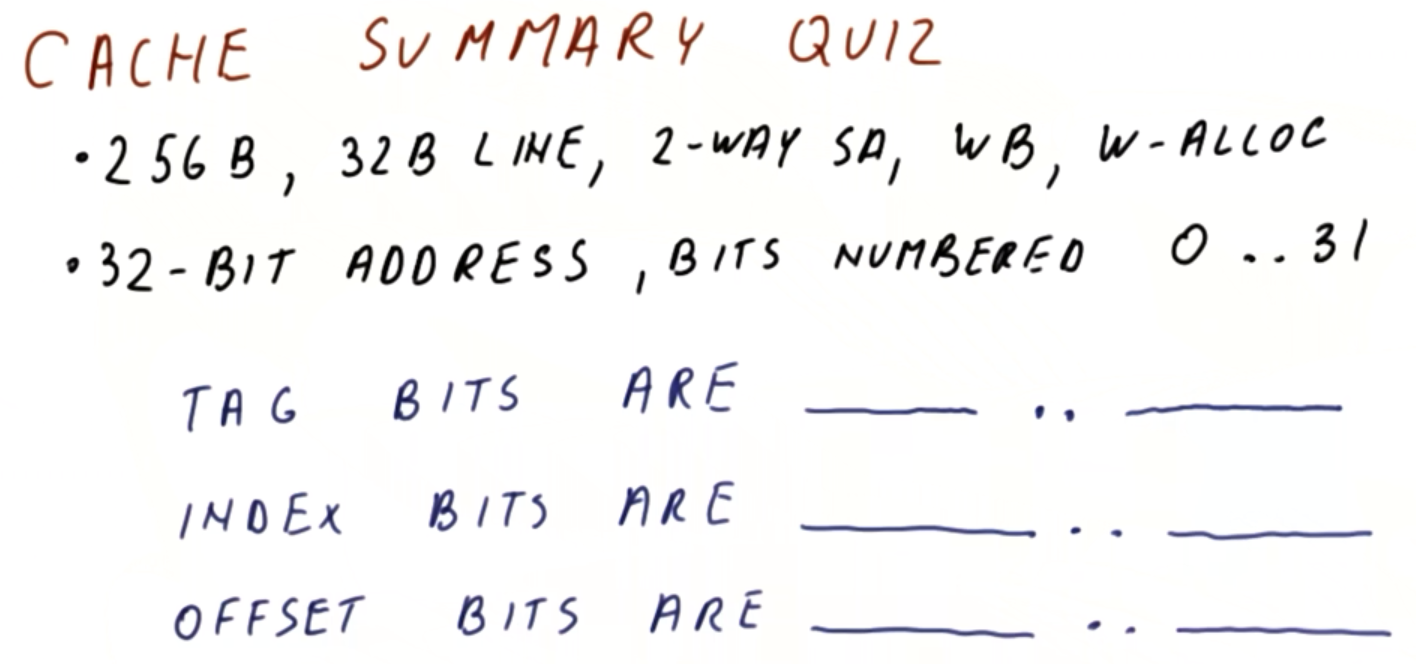 CACHE SUMMARY QUIZ
• 256 B, 32B LINE, 2-WAY SA, WB, W-ALLOC
• 32-BIT ADDRESS, BITS NUMBERED 0..31
TAG BITS ARE ____ .. ____
INDEX BITS ARE ____ .. ____
OFFSET BITS ARE ____ .. ____